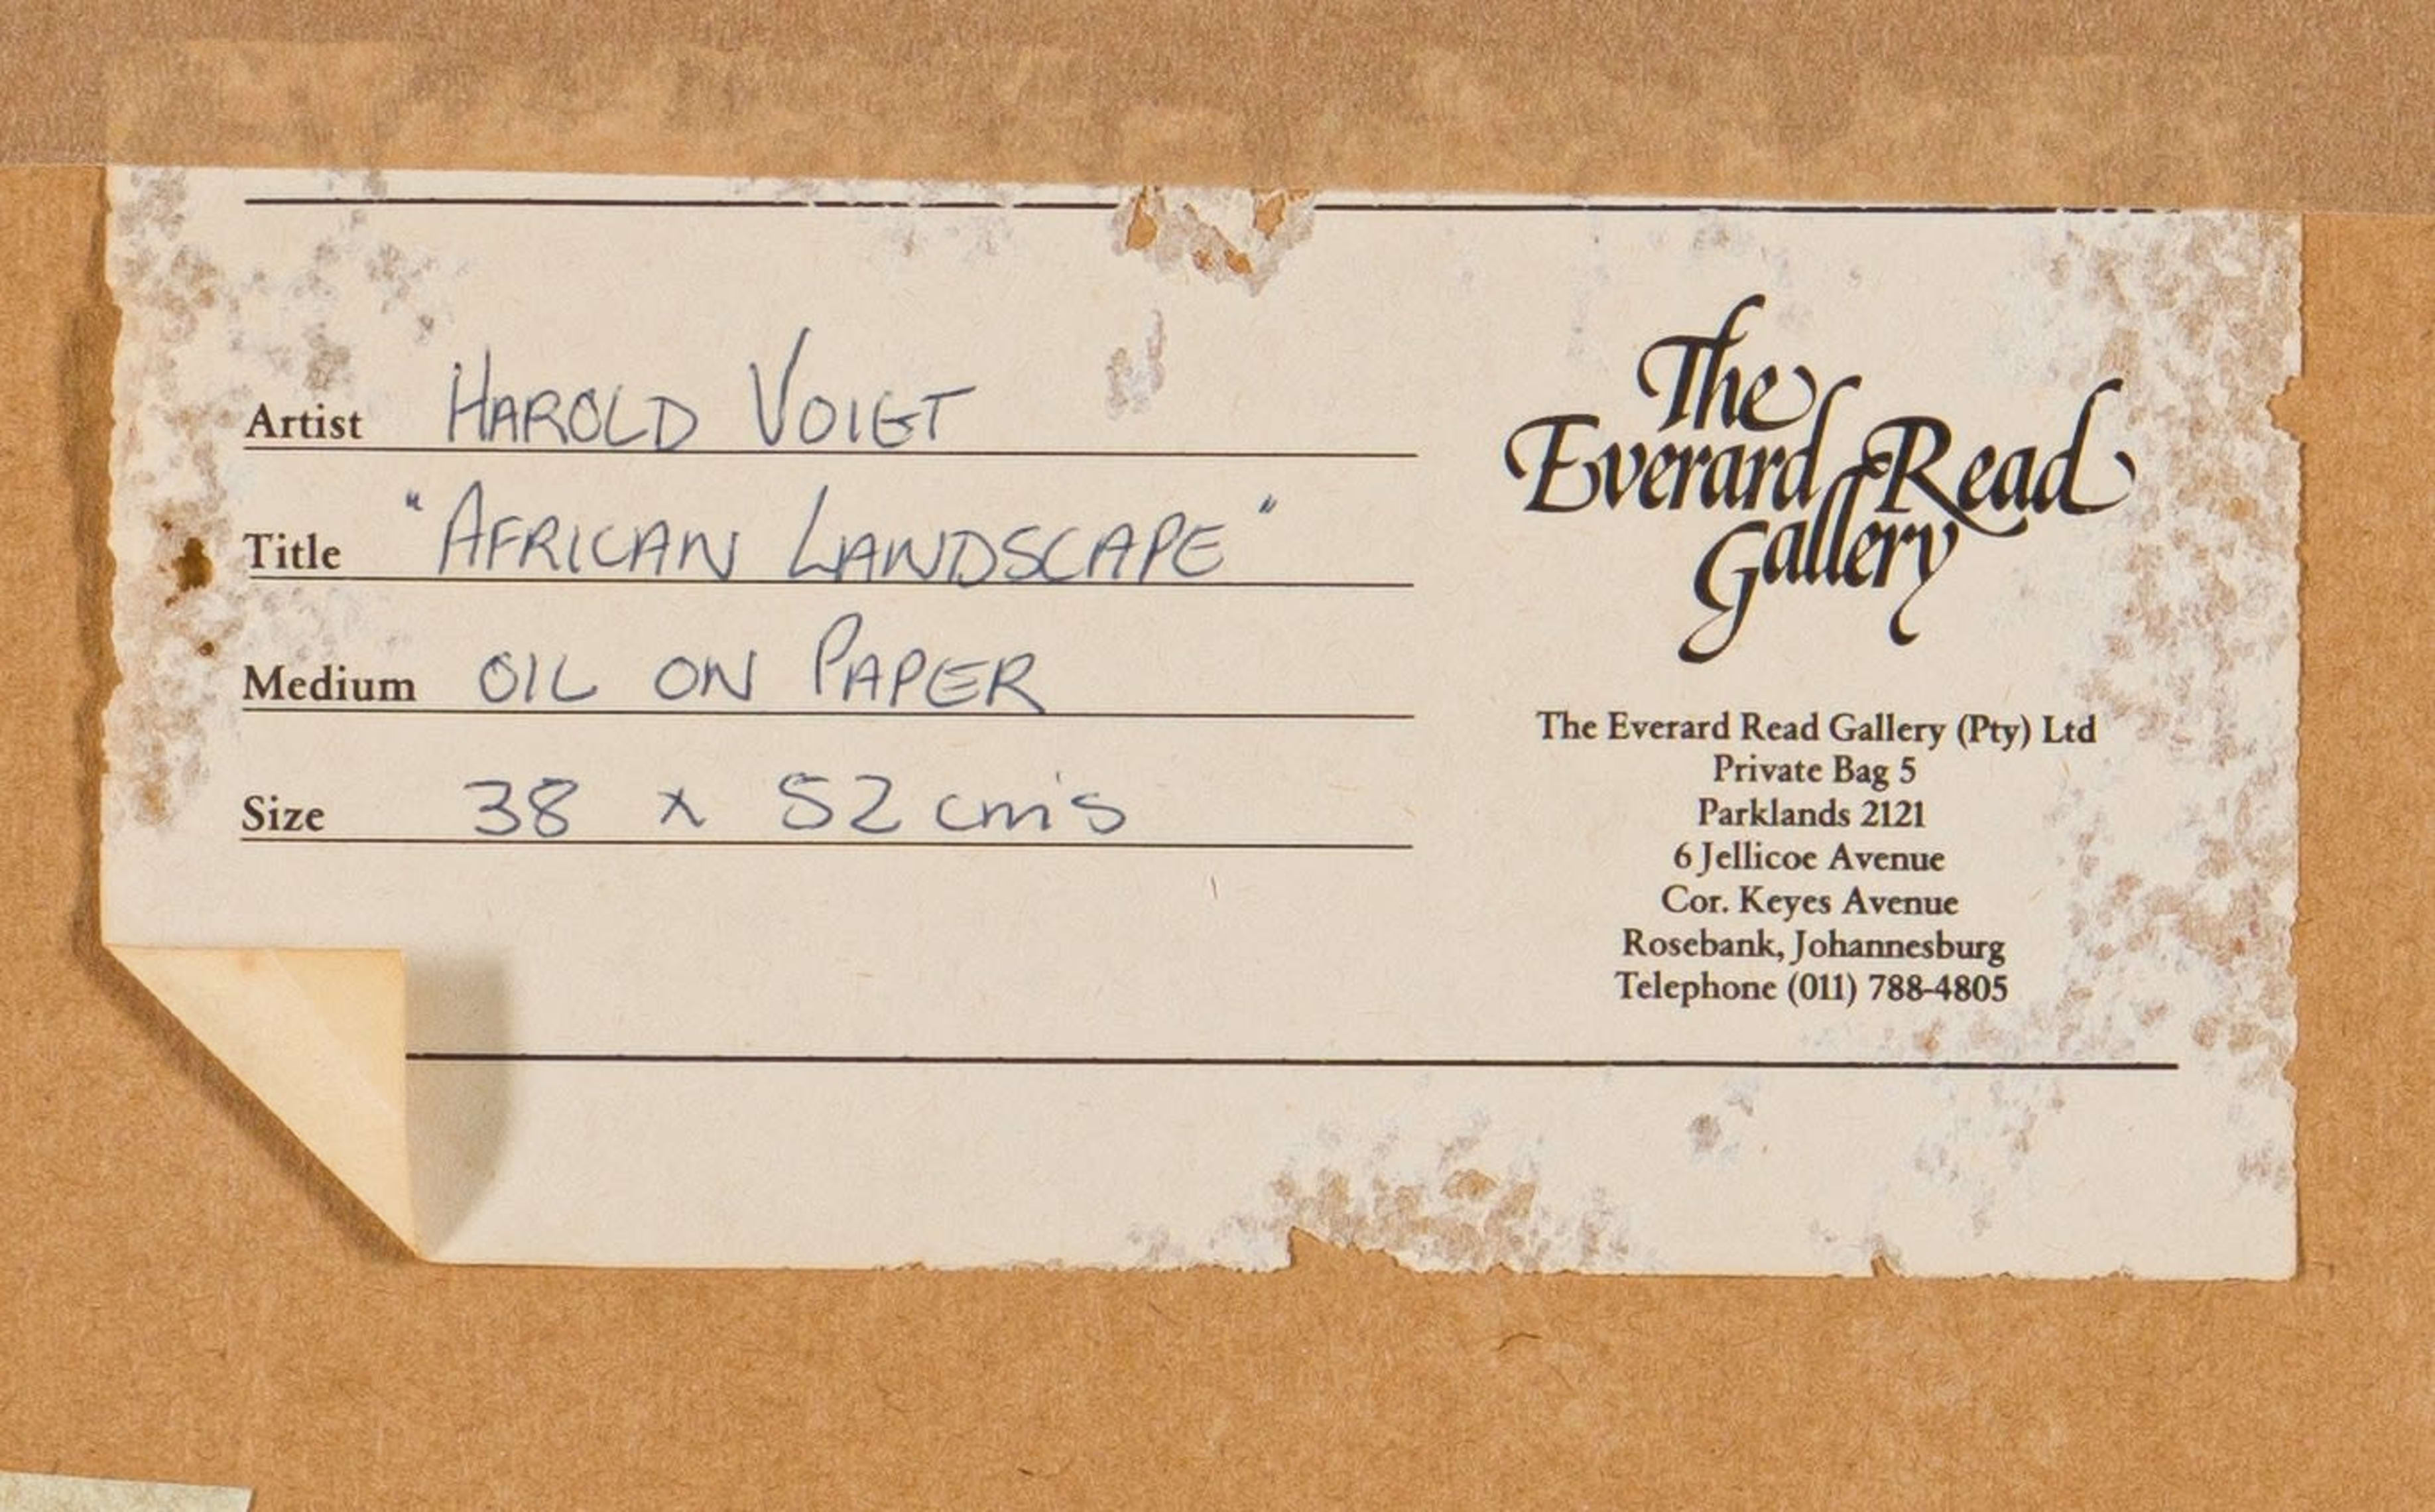 Artist HAROLD VOIGT
Title "AFRICAN LANDSCAPE"
Medium OIL ON PAPER
Size 38 x 52 cm's
The
Everard Read
Gallery
The Everard Read Gallery (Pty) Ltd
Private Bag 5
Parklands 2121
6 Jellicoe Avenue
Cor. Keyes Avenue
Rosebank, Johannesburg
Telephone (011) 788-4805